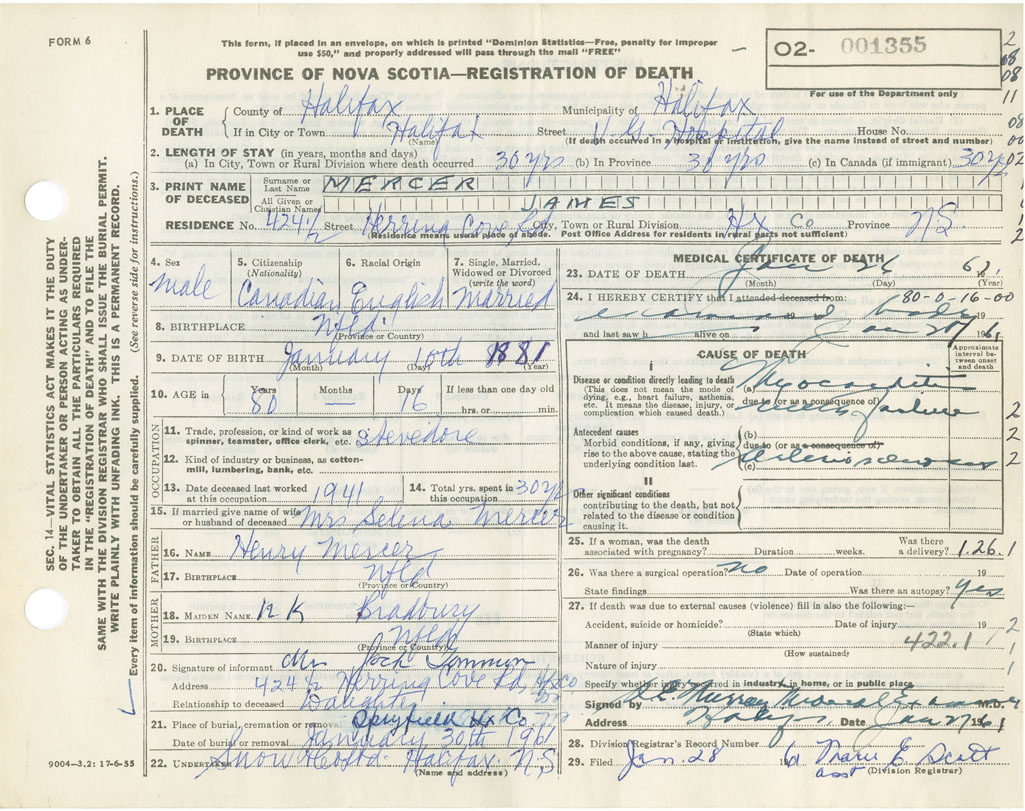 FORM 6
This form, if placed in an envelope, on which is printed "Dominion Statistics—Free, penalty for improper
use $50," and properly addressed will pass through the mail "FREE"
PROVINCE OF NOVA SCOTIA—REGISTRATION OF DEATH
02- 001355
For use of the Department only
1. PLACE OF DEATH County of Halifax Municipality of Halifax
If in City or Town Halifax Street V. G. Hospital House No.
(Name) (If death occurred in a hospital or institution, give the name instead of street and number)
2. LENGTH OF STAY (in years, months and days)
(a) In City, Town or Rural Division where death occurred 30 yrs (b) In Province 30 yrs (c) In Canada (if immigrant) 30 yrs
3. PRINT NAME OF DECEASED Surname or Last Name MERCER
All Given or Christian Names JAMES
RESIDENCE No. 424½ Street Herring Cove Rd City, Town or Rural Division Hx Co Province NS
(Residence means usual place of abode. Post Office Address for residents in rural parts not sufficient)
4. Sex male
5. Citizenship (Nationality) Canadian
6. Racial Origin English
7. Single, Married, Widowed or Divorced (write the word) Married
8. BIRTHPLACE Nfld.
(Province or Country)
9. DATE OF BIRTH January 10th 1881
(Month) (Day) (Year)
10. AGE in Years 80 Months — Days 16 If less than one day old hrs. or min.
OCCUPATION
11. Trade, profession, or kind of work as spinner, teamster, office clerk, etc. Stevedore
12. Kind of industry or business, as cotton-mill, lumbering, bank, etc.
13. Date deceased last worked at this occupation 1941
14. Total yrs. spent in this occupation 30 yrs
15. If married give name of wife or husband of deceased Mrs Selena Mercer
FATHER
16. NAME Henry Mercer
17. BIRTHPLACE Nfld
(Province or Country)
MOTHER
18. MAIDEN NAME N K Bradbury
19. BIRTHPLACE Nfld
(Province or Country)
20. Signature of informant Mrs Jack
Address 424½ Herring Cove Rd,
Relationship to deceased Daughter
21. Place of burial, cremation or removal Spryfield Hx Co
Date of burial or removal January 30th 1961
22. UNDERTAKER Snow Halifax N.S
(Name and address)
9004—3.2: 17-6-55
MEDICAL CERTIFICATE OF DEATH
23. DATE OF DEATH Jan 26 61
(Month) (Day) (Year)
24. I HEREBY CERTIFY that I attended deceased from: 80-0-16-00
examined body 19 19
and last saw h alive on Jan 1961
CAUSE OF DEATH
Approximate interval between onset and death
I
Disease or condition directly leading to death
(This does not mean the mode of dying, e.g., heart failure, asthenia, etc. It means the disease, injury, or complication which caused death.)
(a) Myocarditis
due to (or as a consequence of)
failure
Antecedent causes
Morbid conditions, if any, giving rise to the above cause, stating the underlying condition last.
(b)
due to (or as a consequence of)
(c) Arteriosclerosis
II
Other significant conditions
contributing to the death, but not related to the disease or condition causing it.
25. If a woman, was the death associated with pregnancy? Duration weeks. Was there a delivery? 1.26.1
26. Was there a surgical operation? no Date of operation 19
State findings Was there an autopsy? Yes
27. If death was due to external causes (violence) fill in also the following:—
Accident, suicide or homicide? Date of injury 19
(State which)
Manner of injury 422.1
(How sustained)
Nature of injury
Specify whether injury occurred in industry, in home, or in public place
Signed by Murray Medical Examiner M.D.
Address Halifax Date Jan 27 1961
28. Division Registrar's Record Number
29. Filed Jan. 28 1961 Marie E. Scott
asst (Division Registrar)
SEC. 14—VITAL STATISTICS ACT MAKES IT THE DUTY
OF THE UNDERTAKER OR PERSON ACTING AS UNDER-
TAKER TO OBTAIN ALL THE PARTICULARS REQUIRED
IN THE "REGISTRATION OF DEATH" AND TO FILE THE
SAME WITH THE DIVISION REGISTRAR WHO SHALL ISSUE THE BURIAL PERMIT.
WRITE PLAINLY WITH UNFADING INK. THIS IS A PERMANENT RECORD.
Every item of information should be carefully supplied. (See reverse side for instructions.)